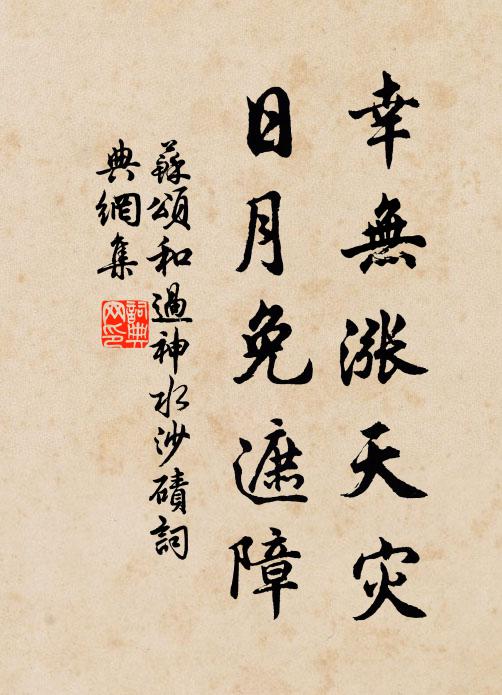 幸無漲天災
日月免遮障
蘇頌和過神水沙磧詞
典網集
詞典网印